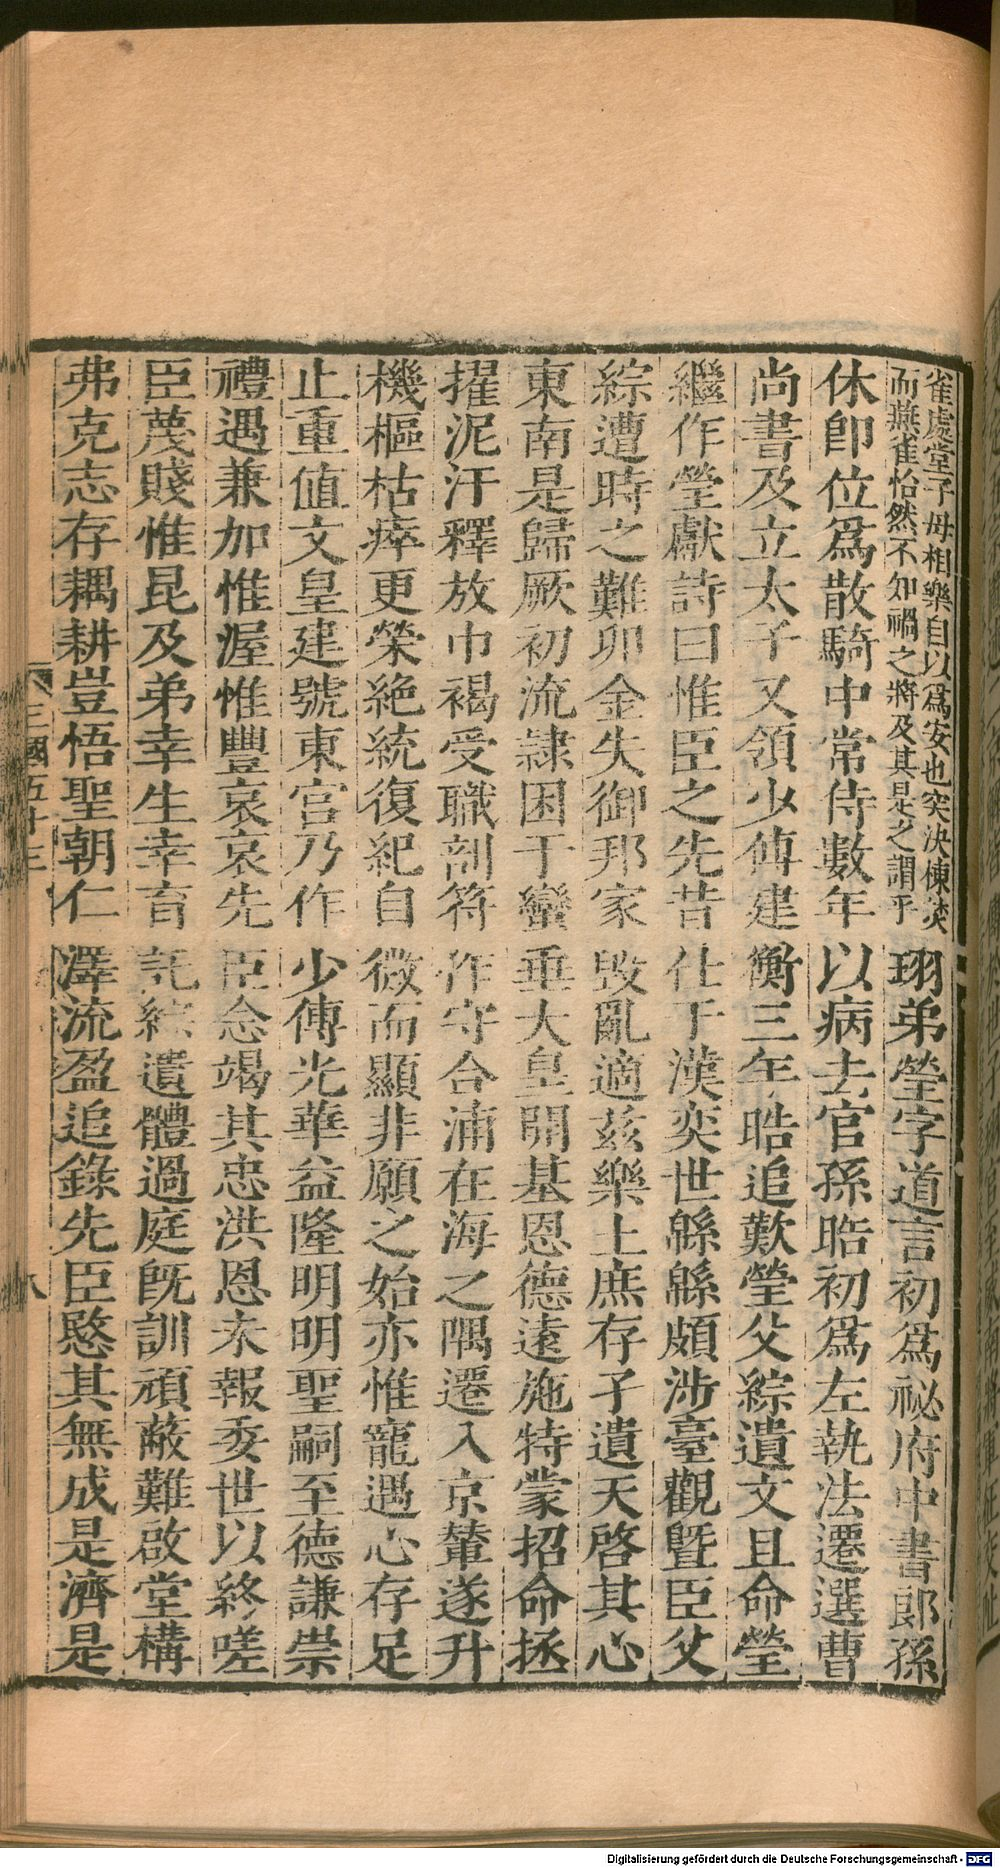 雀處堂子母相樂自以爲安也突決棟焚
而燕雀怡然不知禍之將及其是之謂乎
珝弟瑩字道言初爲祕府中書郎孫
休卽位爲散騎中常侍數年以病去官孫晧初爲左執法遷選曹
尚書及立太子又領少傅建衡三年晧追歎瑩父綜遺文且命瑩
繼作瑩獻詩曰惟臣之先昔仕于漢奕世緜緜頗涉臺觀曁臣父
綜遭時之難卯金失御邦家毁亂適茲樂土庶存孑遺天啓其心
東南是歸厥初流隷困于蠻垂大皇開基恩德遠施特蒙招命拯
擢泥汙釋放巾褐受職剖符作守合浦在海之隅遷入京輦遂升
機樞枯瘁更榮絶統復紀自微而顯非願之始亦惟寵遇心存足
止重値文皇建號東宮乃作少傅光華益隆明明聖嗣至德謙崇
禮遇兼加惟渥惟豐哀哀先臣念竭其忠洪恩未報委世以終嗟
臣蔑賤惟昆及弟幸生幸育託綜遺體過庭旣訓頑蔽難啟堂構
弗克志存耦耕豈悟聖朝仁澤流盈追錄先臣愍其無成是濟是
三國五十三
八
Digitalisierung gefördert durch die Deutsche Forschungsgemeinschaft - DFG